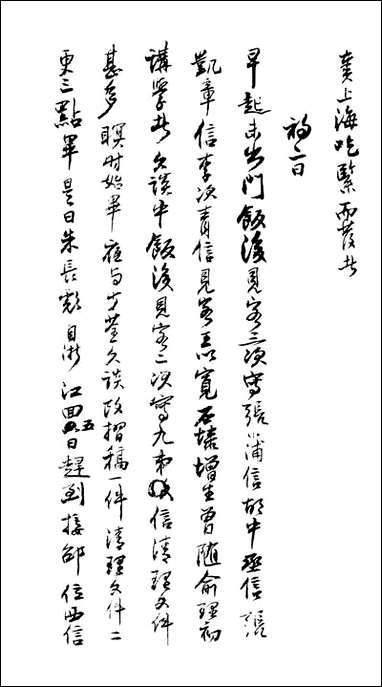 奠上海吃緊而發者
初二日
早起未出門飯後見客三次寫張蒲信胡中丞信張
凱章信李次青信見客王以寬石埭增生曾隨俞理初
講學者久談中飯後見客二次寫九弟信清理文件
甚多暝時始畢夜与少荃久談改摺稿一件清理文件二
更三點畢是日朱長彪自浙江回五日趕到接邵位西信